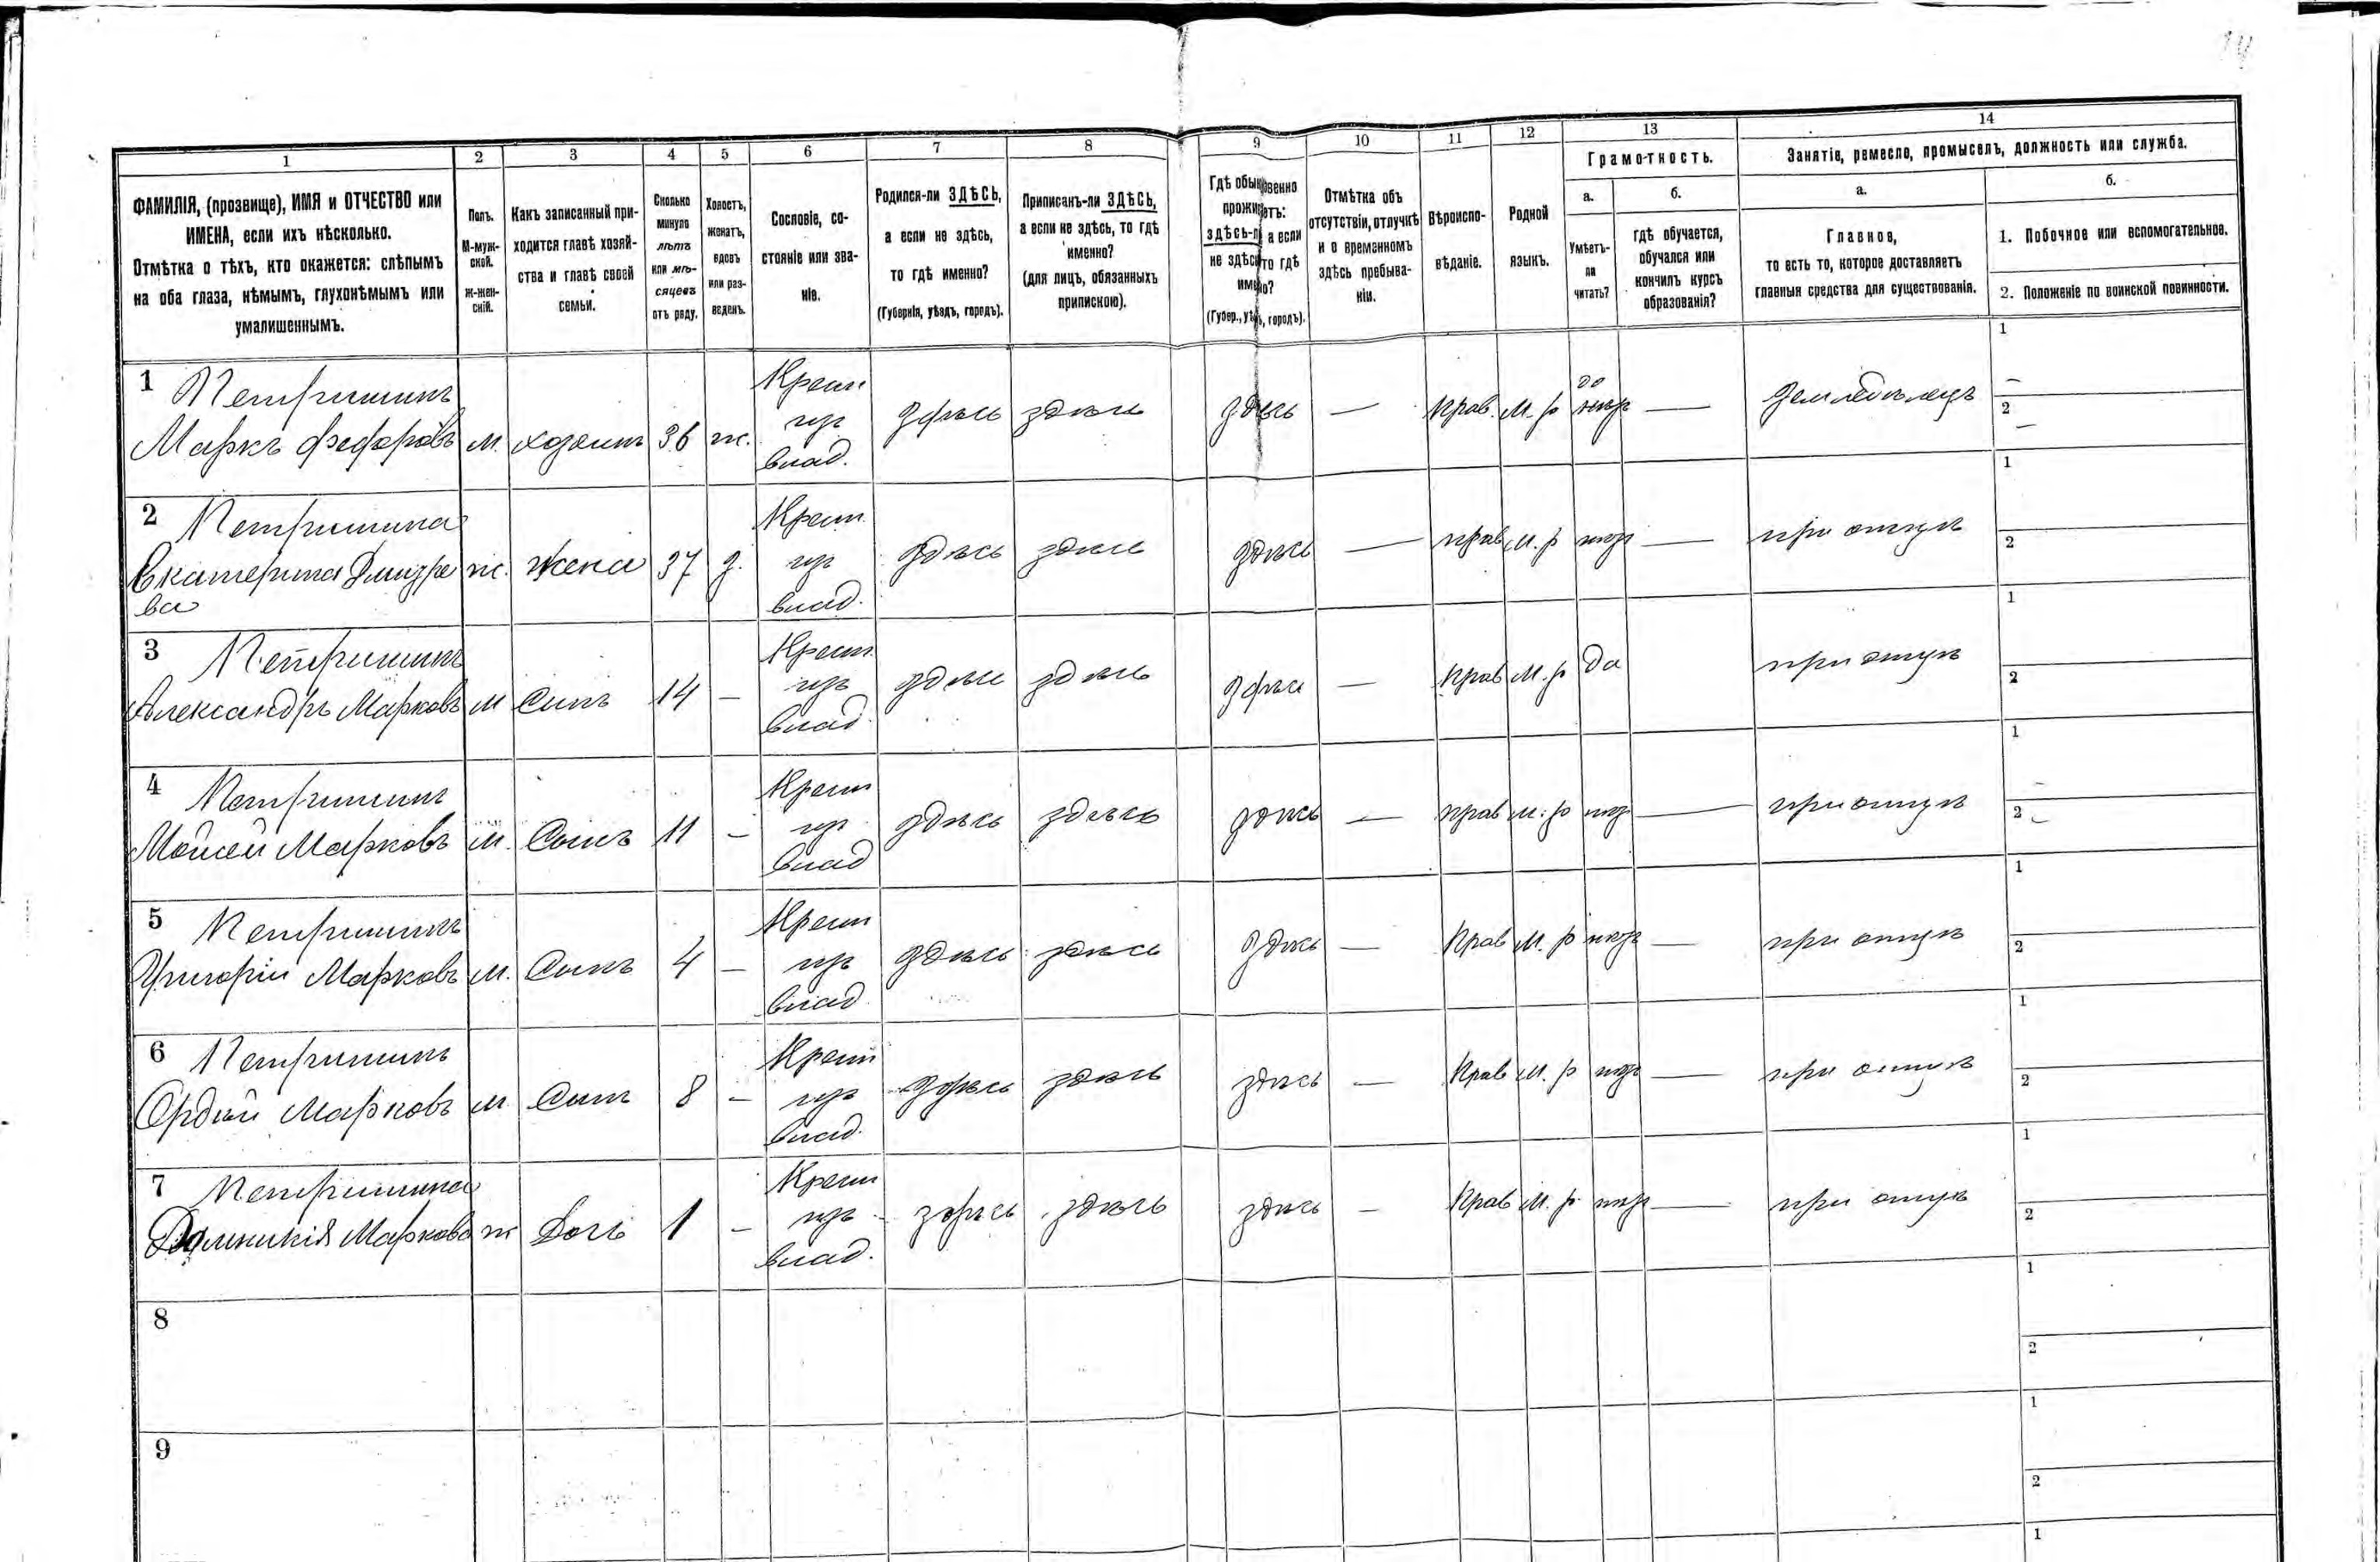 14
1 2 3 4 5 6 7 8 9 10 11 12 13 14
ФАМИЛІЯ, (прозвище), ИМЯ и ОТЧЕСТВО или
ИМЕНА, если ихъ нѣсколько.
Отмѣтка о тѣхъ, кто окажется: слѣпымъ
на оба глаза, нѣмымъ, глухонѣмымъ или
умалишеннымъ.
Полъ.
М-муж-
ской.
Ж-жен-
скій.
Какъ записанный при-
ходится главѣ хозяй-
ства и главѣ своей
семьи.
Сколько
минуло
лѣтъ
или мѣ-
сяцевъ
отъ роду.
Холостъ,
женатъ,
вдовъ
или раз-
веденъ.
Сословіе, со-
стояніе или зва-
ніе.
Родился-ли ЗДѢСЬ,
а если не здѣсь,
то гдѣ именно?
(Губернія, уѣздъ, городъ).
Приписанъ-ли ЗДѢСЬ,
а если не здѣсь, то гдѣ
именно?
(для лицъ, обязанныхъ
припискою).
Гдѣ обыкновенно
проживаетъ:
здѣсь-ли а если
не здѣсь то гдѣ
именно?
(Губер., уѣз., городъ).
Отмѣтка объ
отсутствіи, отлучкѣ
и о временномъ
здѣсь пребыва-
ніи.
Вѣроиспо-
вѣданіе.
Родной
языкъ.
Грамотность.
а.
Умѣетъ-
ли
читать?
б.
гдѣ обучается,
обучался или
кончилъ курсъ
образованія?
Занятіе, ремесло, промыселъ, должность или служба.
а.
Главное,
то есть то, которое доставляетъ
главныя средства для существованія.
б.
1. Побочное или вспомогательное.
2. Положеніе по воинской повинности.
1 Петришинъ
Маркъ Федоровъ м. хозяинъ 36 ж. Крест из влад. здѣсь здѣсь здѣсь — Прав. М. р — земледѣлецъ 1 — 2 —
2 Петришина
Екатерина ж. жена 37 з. Крест из влад. здѣсь здѣсь здѣсь — прав м. р — при 1 2
ва
3 Петришинъ
Александръ Марковъ м сынъ 14 — Крест из влад здѣсь здѣсь здѣсь — Прав М. р Да при 1 2
4 Петришинъ
Моисей Марковъ м. Сынъ 11 — Крест из влад здѣсь здѣсь здѣсь — прав м. р — при 1 — 2 —
5 Петришинъ
Григорій Марковъ м. Сынъ 4 — Крест из влад здѣсь здѣсь здѣсь — Прав М. р — при 1 2
6 Петришинъ
Марковъ м Сынъ 8 — Крест из влад. здѣсь здѣсь здѣсь — Прав М. р — при 1 2
7 Петришина
Маркова ж Дочь 1 — Крест из влад. здѣсь здѣсь здѣсь — Прав М. р — при 1 2
8 1 2
9 1 2
1